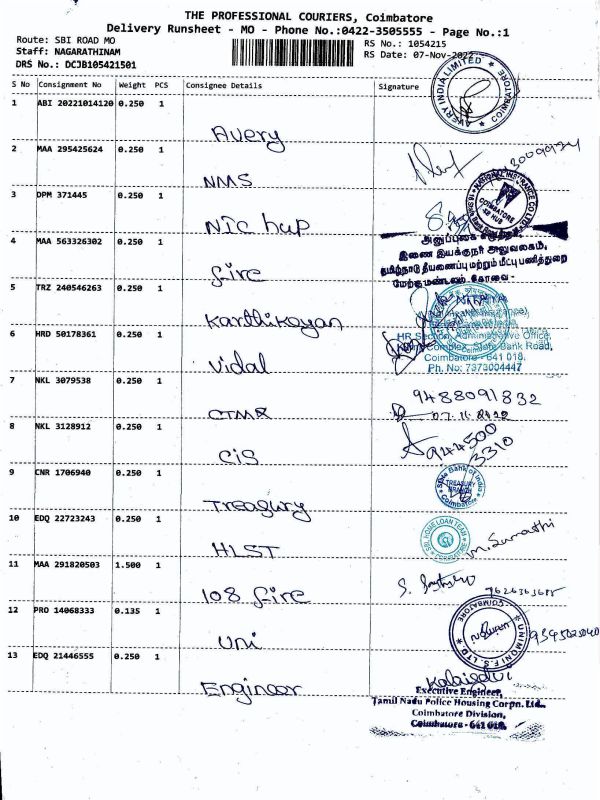 THE PROFESSIONAL COURIERS, Coimbatore
Delivery Runsheet - MO - Phone No.:0422-3505555 - Page No.:1
Route: SBI ROAD MO
Staff: NAGARATHINAM
DRS No.: DCJB105421501
RS No.: 1054215
RS Date: 07-Nov-2022
S No Consignment No Weight PCS Consignee Details Signature
AVERY INDIA LIMITED COIMBATORE
1 ABI 20221014120 0.250 1 Avery
2 MAA 295425624 0.250 1 NMS
NATIONAL INSURANCE CO LTD
COIMBATORE
HUB
3 DPM 371445 0.250 1 NIC hup
இணை இயக்குநர் அலுவலகம்,
தமிழ்நாடு தீயணைப்பு மற்றும் மீட்பு பணித்துறை
மேற்கு மண்டலம், கோவை -
4 MAA 563326302 0.250 1 fire
5 TRZ 240546263 0.250 1 Karthikeyan
HR Section, Administrative Office,
State Bank Road,
Coimbatore - 641 018.
Ph. No: 7373004447
6 HRD 50178361 0.250 1 Vidal
9488091832
7 NKL 3079538 0.250 1 CTMX
944500
3310
8 NKL 3128912 0.250 1 CIS
State Bank of India
TREASURY
BRANCH
Coimbatore
9 CNR 1706940 0.250 1 Treasury
SBI, HOME LOAN TEAM
COIMBATORE
M. Sumathi
10 EDQ 22723243 0.250 1 HLST
11 MAA 291820503 1.500 1 108 fire
COIMBATORE
UNIMONI F.S. LTD
12 PRO 14068333 0.135 1 Uni
13 EDQ 21446555 0.250 1 Engineer
Executive Engineer,
Tamil Nadu Police Housing Corpn. Ltd.,
Coimbatore Division,
Coimbatore - 641 018.